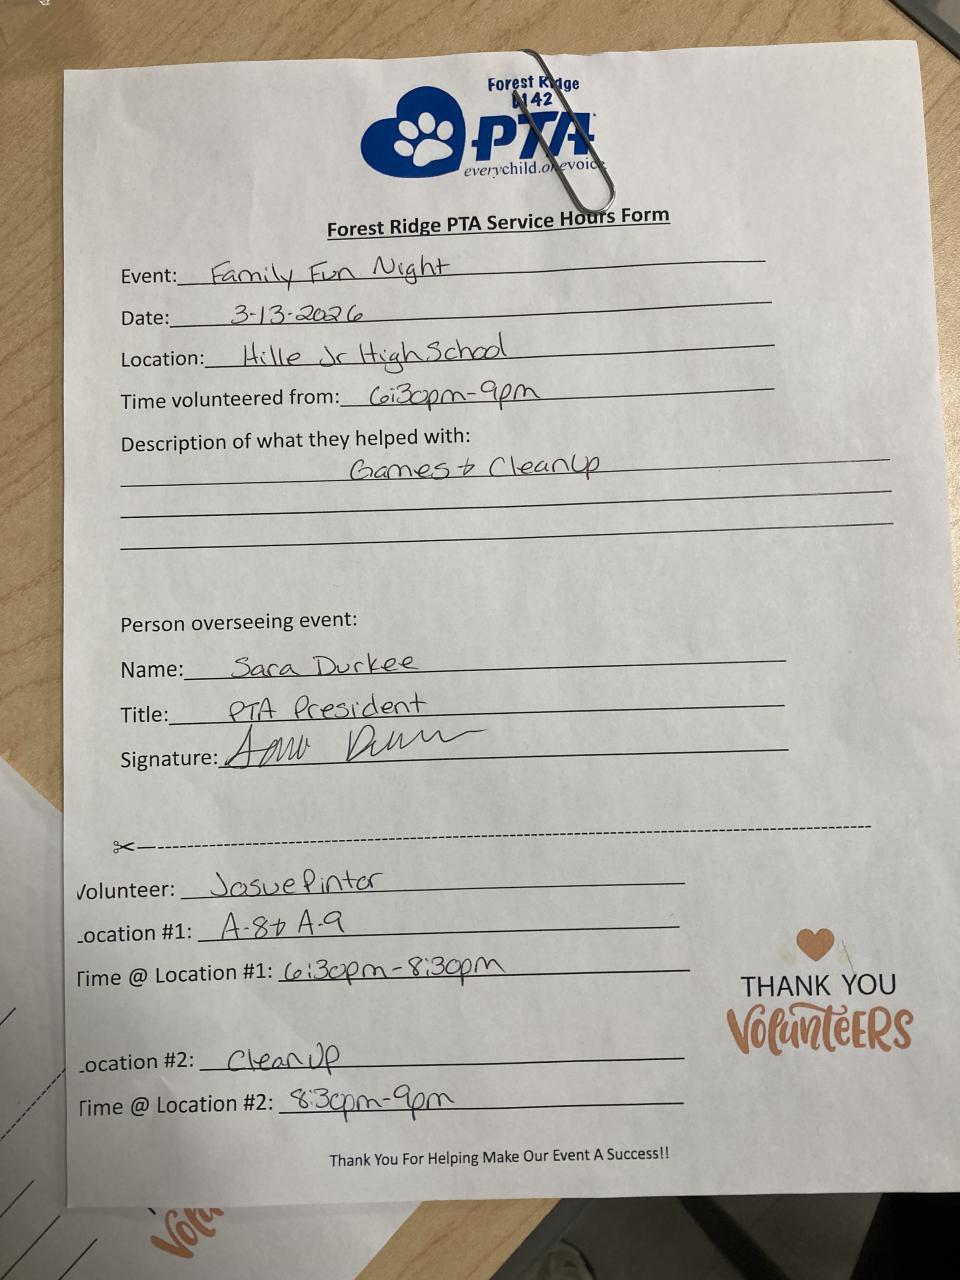 Forest Ridge
D142
PTA
everychild.onevoice
Forest Ridge PTA Service Hours Form
Event: Family Fun Night
Date: 3-13-2026
Location: Hille Jr High School
Time volunteered from: 6:30pm-9pm
Description of what they helped with:
Games & Clean Up
Person overseeing event:
Name: Sara Durkee
Title: PTA President
Signature:
Volunteer: Josue Pintor
Location #1: A-8 & A-9
Time @ Location #1: 6:30pm-8:30pm
THANK YOU
VOLUNTEERS
Location #2: Clean Up
Time @ Location #2: 8:30pm-9pm
Thank You For Helping Make Our Event A Success!!